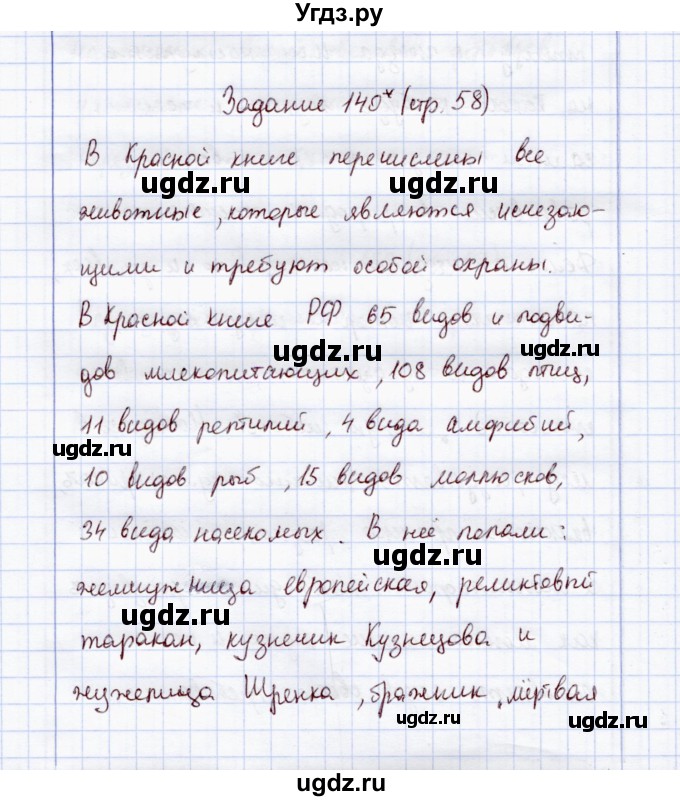 Угдз.ру
Задание 140* (стр. 58)
В Красной книге перечислены все
ugdz.ru ugdz.ru
животные, которые являются исчезаю-
щими и требуют особой охраны.
В Красной книге РФ 65 видов и подви-
ugdz.ru ugdz.ru
дов млекопитающих, 108 видов птиц,
11 видов рептилий, 4 вида амфибий,
ugdz.ru
10 видов рыб, 15 видов моллюсков,
34 вида насекомых. В неё попали:
ugdz.ru
жемчужница европейская, реликтовый
ugdz.ru
таракан, кузнечик Кузнецова и
жужелица Шренка, бражник, мёртвая
ugdz.ru ugdz.ru
ugdz.ru